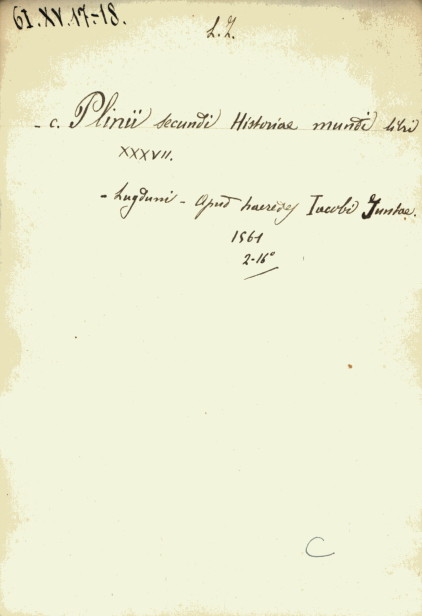 61.XV.17-18.
L.Z.
- c. Plinii secundi Historiae mundi libri
XXXVII.
- Lugduni - Apud haeredes Iacobi Juntae.
1561
2-16°
C